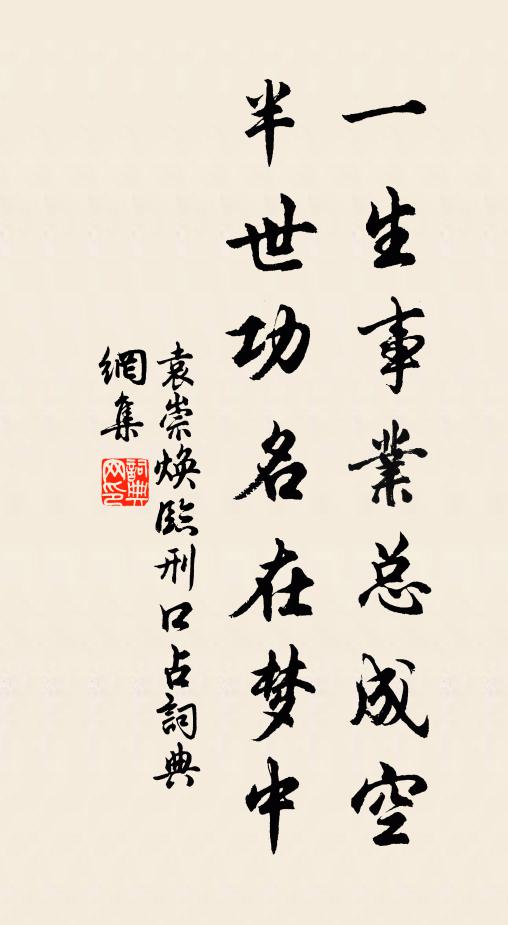 一生事業总成空
半世功名在梦中
袁崇焕臨刑口占詞典
網集
詞典
网印